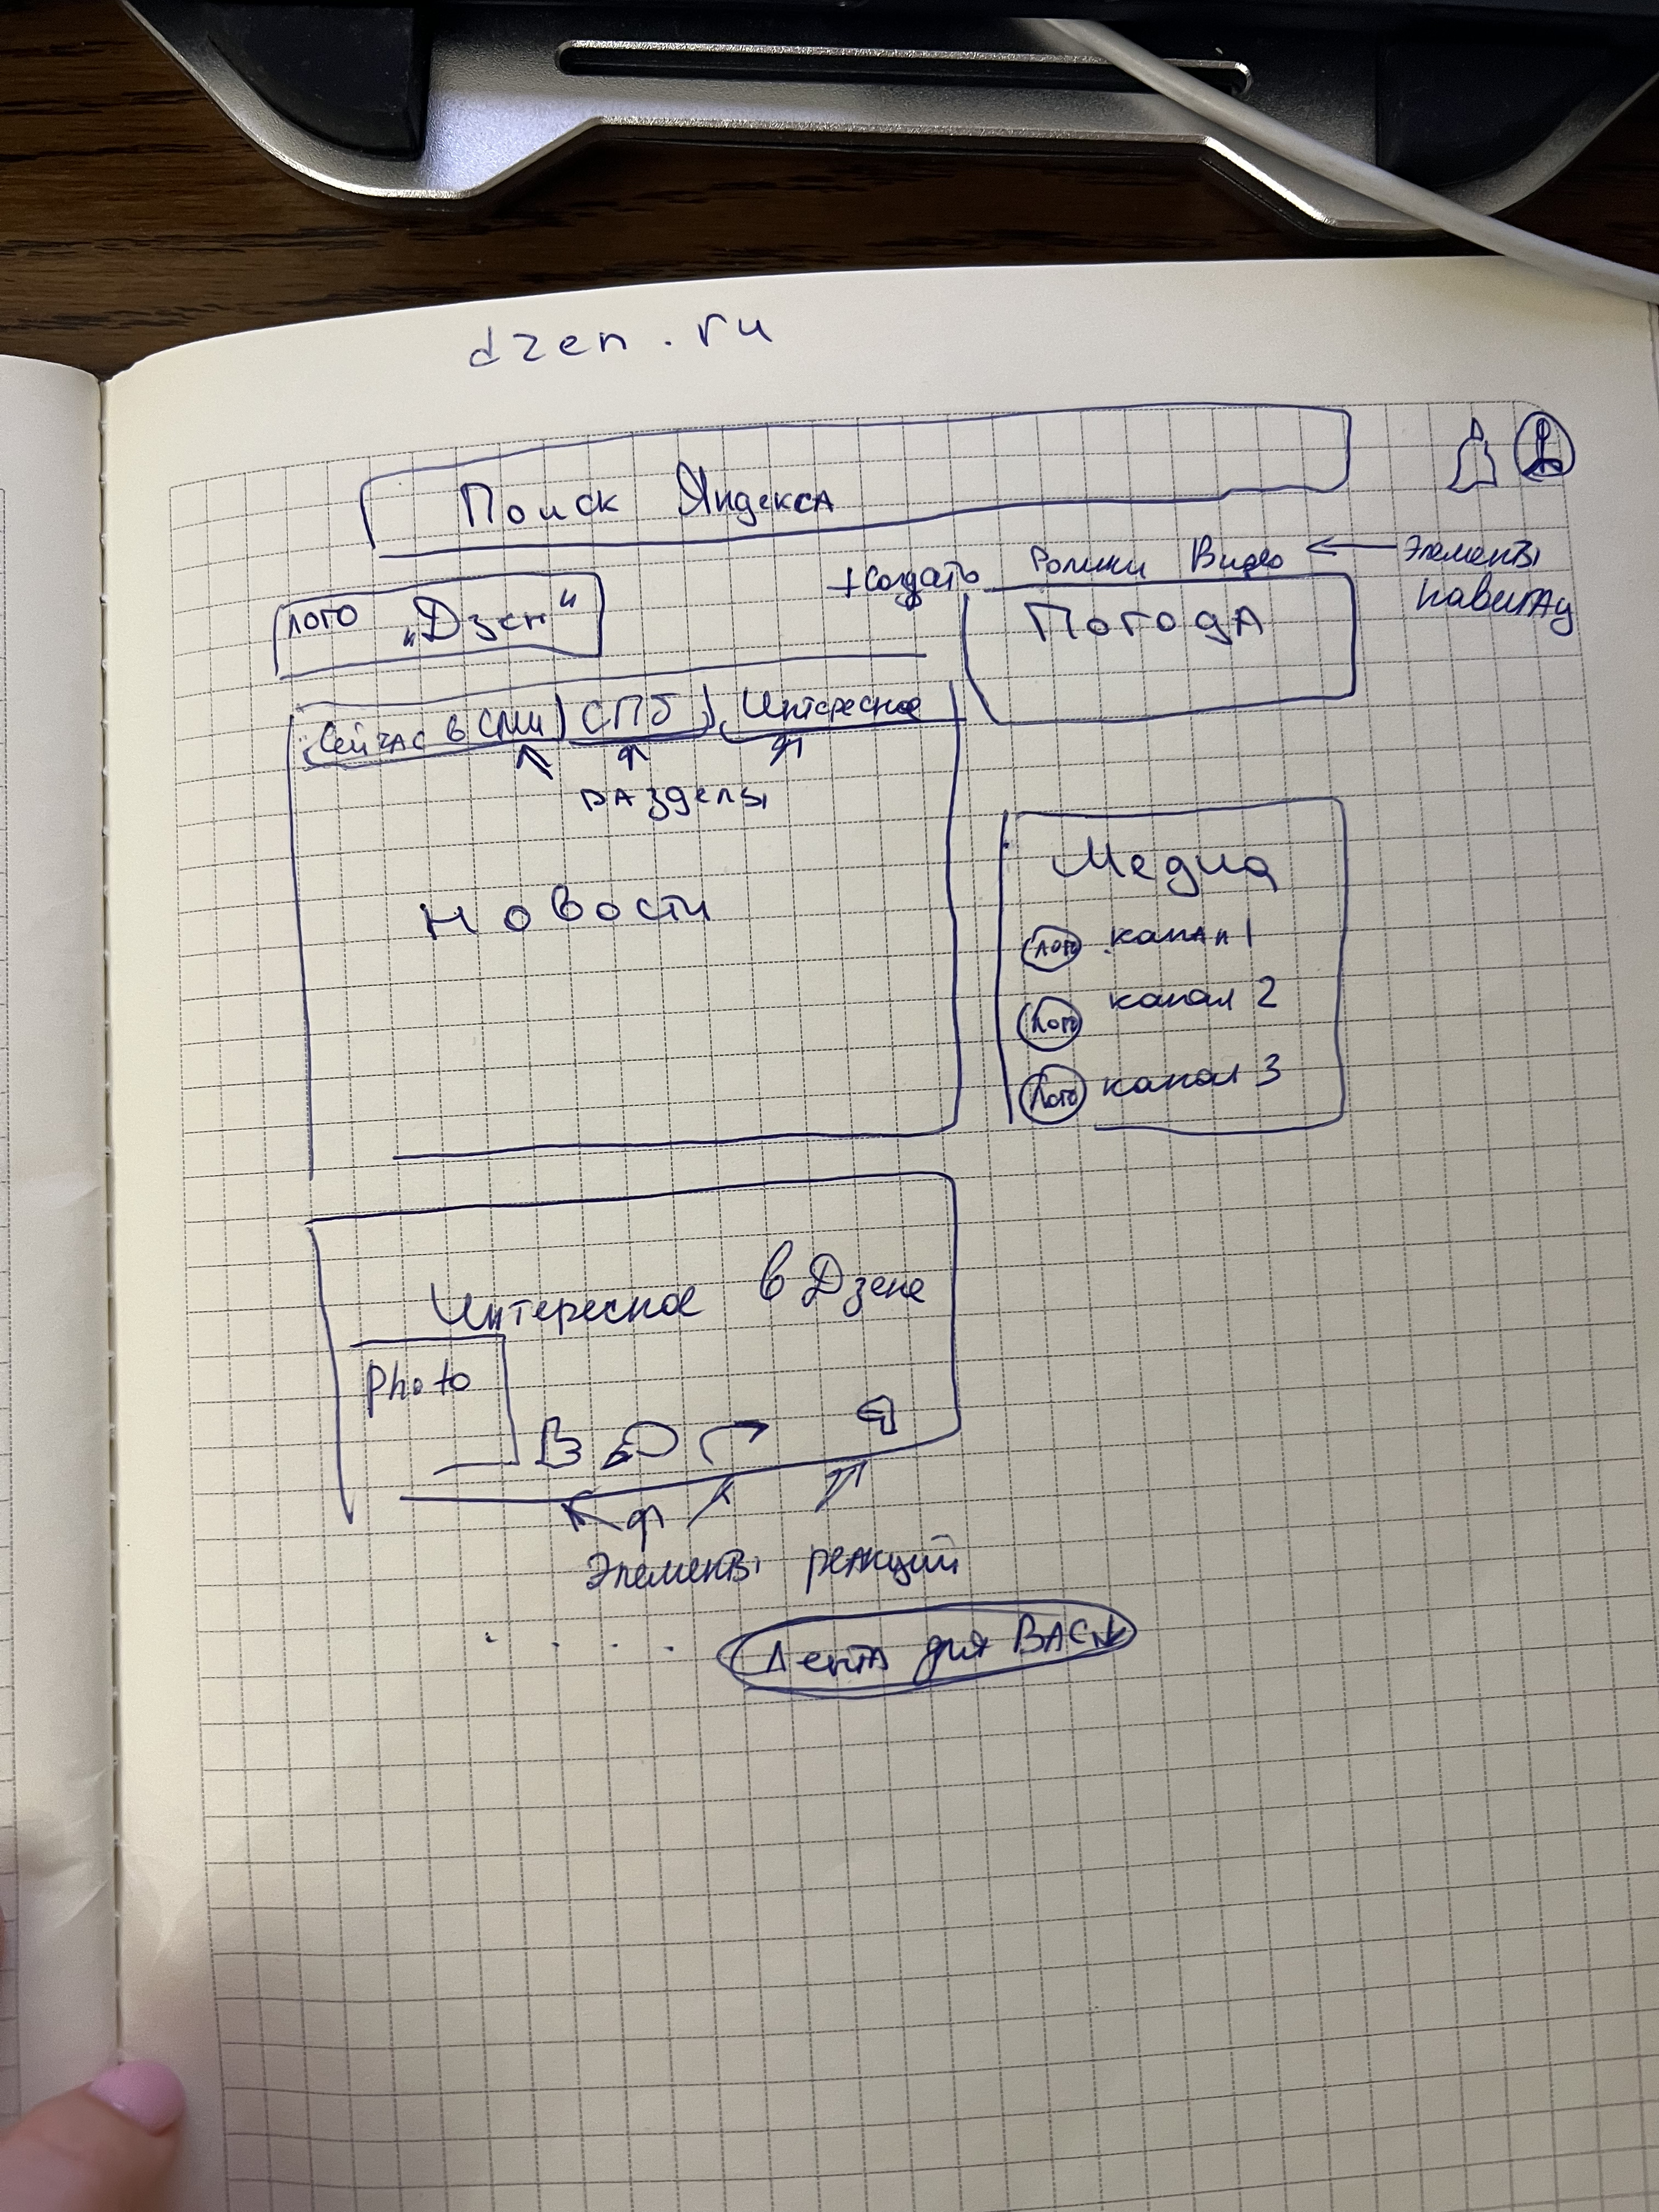 dzen.ru
Поиск Яндекса
+Создать Ролики Видео
Элементы
навигац
лого „Дзен"
Погода
Сейчас в СМИ СПб Интересное
разделы
Новости
Медиа
лого канал 1
лого канал 2
лого канал 3
Интересное в Дзене
photo
Элементы реакций
. . . . Лента для Вас